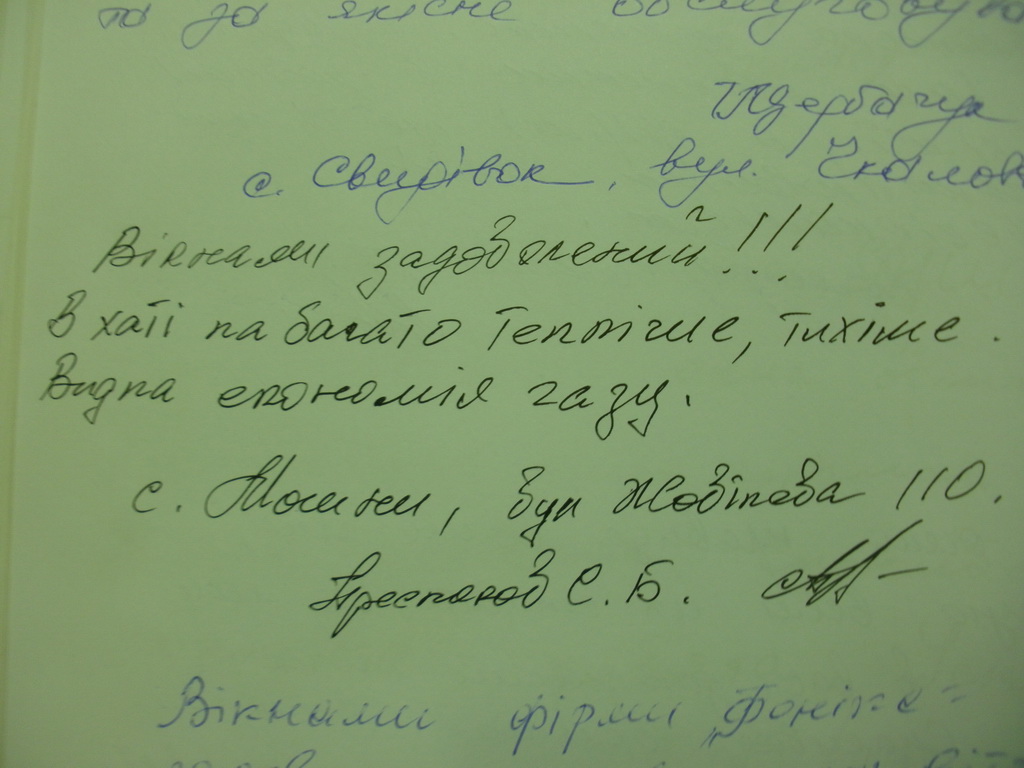 та за якісне обслугову
с. Свидівок, вул. Чкалов
Вікнами задоволений!!!
В хаті на багато тепліше, тихіше.
Видна економія газу.
с. Мошни, вул Жовтнева 110.
С. Б.
Вікнами фірми „Фоніка"